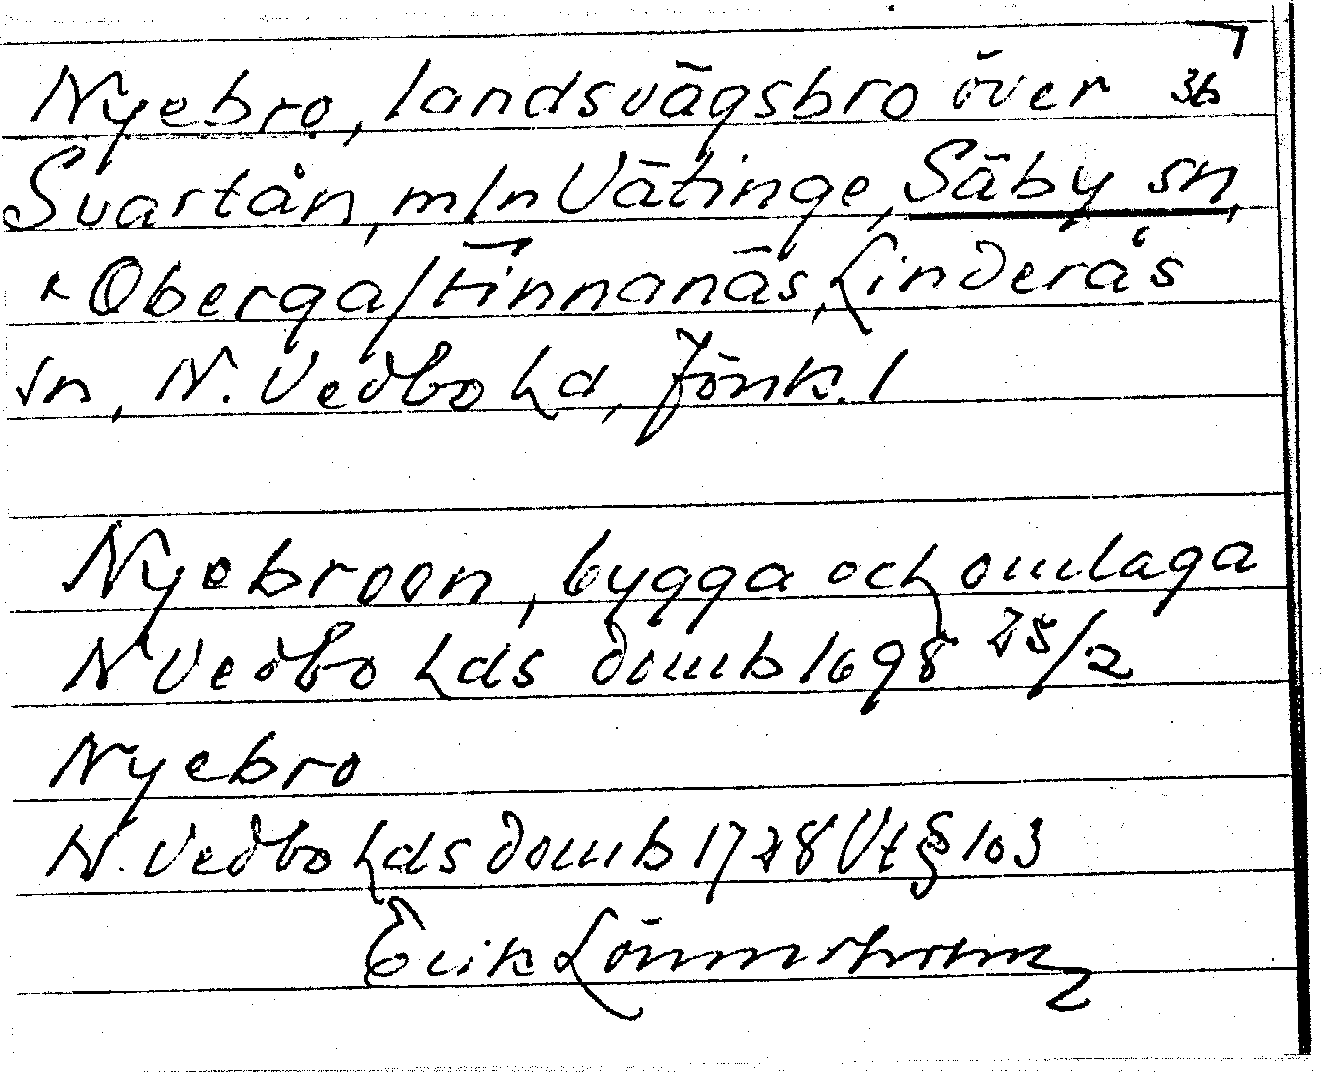 Nyebro, landsvägsbro över 36
Svartån, m/n Vätinge, Säby sn,
Oberga/Finnanäs, Linderås
sn, N. Vedbo hd, Jönk. l
Nyebroon, bygga och omlaga
N Vedbo hds domb 1698 25/2
Nyebro
N. Vedbo hds domb 1728 Vt § 103
Erik